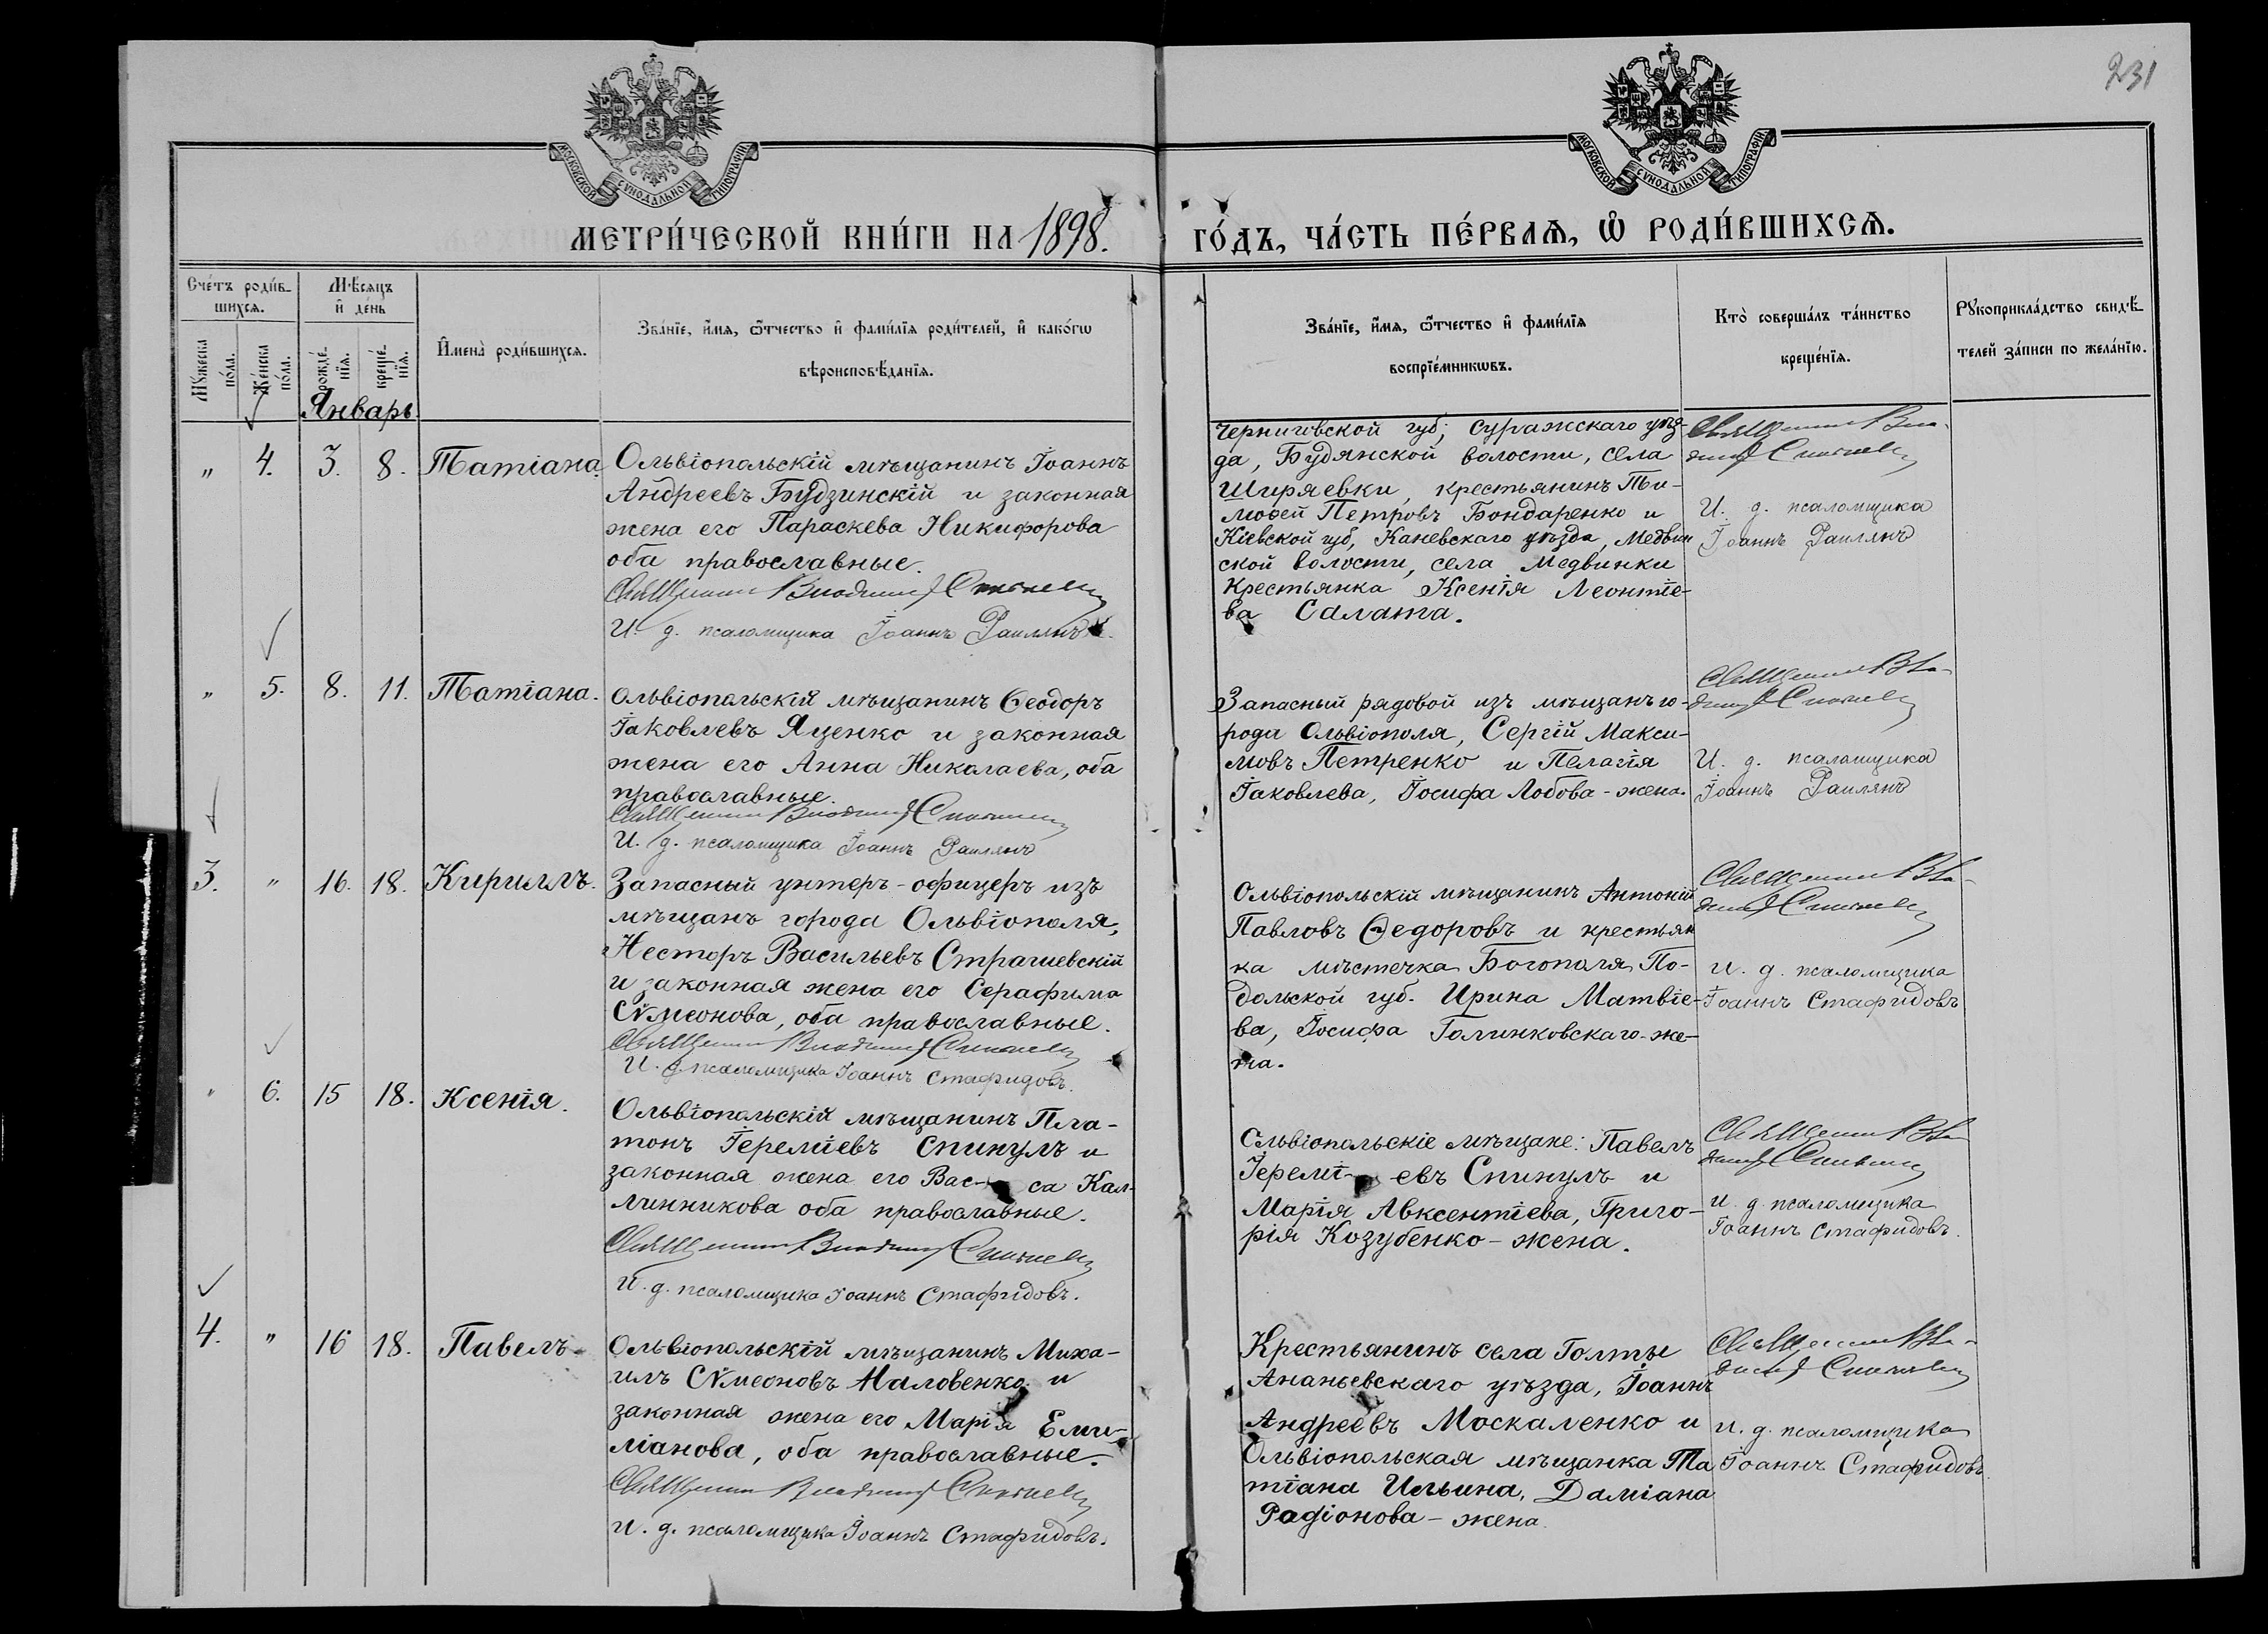 231
МОСКОВСКОЙ СѴНОДАЛЬНОЙ ТИПОГРАФІИ
МОСКОВСКОЙ СѴНОДАЛЬНОЙ ТИПОГРАФІИ
МЕТРИ́ЧЕСКОЙ КНИ́ГИ НА 1898. ГО́ДЪ, ЧА́СТЬ ПЕ́РВАѦ, Ѡ РОДИ́ВШИХСѦ.
Сче́тъ роди́в-
шихсѧ.
Мѣ́сѧцъ
и҆ де́нь
Мꙋ́жеска
по́ла.
Же́нска
по́ла.
рожде́-
нїѧ.
креще́-
нїѧ.
И҆мена̀ роди́вшихсѧ.
Зва́нїе, и҆́мѧ, ѻ҆́тчество и҆ фами́лїѧ роди́телей, и҆ како́гѡ
вѣроисповѣ́данїѧ.
Зва́нїе, и҆́мѧ, ѻ҆́тчество и҆ фами́лїѧ
воспрїе́мникѡвъ.
Кто̀ соверша́лъ та́инство
креще́нїѧ.
Рꙋкоприкла́дство свидѣ́-
телей за́писи по жела́нїю.
Январь
" 4. 3. 8. Татіана.
Ольвіопольскій мѣщанинъ Іоаннъ
Андреевъ Будзинскій и законная
жена его Параскева Никифорова
оба православные.
Священник Владимир
И. д. псаломщика Іоаннъ Раилянъ.
Черниговской губ; Суражскаго уѣз-
да, Будянской волости, села
Ширяевки, крестьянинъ Ти-
моѳей Петровъ Бондаренко и
Кіевской губ, Каневскаго уѣзда, Медвин
ской волости, села Медвинки
крестьянка Ксенія Леонтіе-
ва Салата.
Священник Вла-
димир
И. д. псаломщика
Іоаннъ Раилянъ
" 5. 8. 11. Татіана.
Ольвіопольскій мѣщанинъ Ѳеодоръ
Іаковлевъ Яценко и законная
жена его Анна Николаева, оба
православные.
Священник Владимир
И. д. псаломщика Іоаннъ Раилянъ
Запасный рядовой изъ мѣщанъ го-
рода Ольвіополя, Сергій Макси-
мовъ Петренко и Пелагія
Іаковлева, Іосифа Лобова - жена.
Священник Вла-
димир
И. д. псаломщика
Іоаннъ Раилянъ
3. " 16. 18. Кириллъ.
Запасный унтеръ-офицеръ изъ
мѣщанъ города Ольвіополя,
Несторъ Васильевъ Страшевскій
и законная жена его Серафима
Сѵмеонова, оба православные.
Священник Владимир
И. д. псаломщика Іоаннъ Стафидовъ.
Ольвіопольскій мѣщанинъ Антоній
Павловъ Ѳедоровъ и крестьян
ка мѣстечка Богополя По-
дольской губ. Ирина Матвіе-
ва, Іосифа Голинковскаго-же-
на.
Священник Вла-
димир
И. д. псаломщика
Іоаннъ Стафидовъ
" 6. 15 18. Ксенія.
Ольвіопольскій мѣщанинъ Пла-
тонъ Іереміевъ Спинулъ и
законная жена его Вас- са Кал-
линникова оба православные.
Священник Владимир
И. д. псаломщика Іоаннъ Стафидовъ.
Ольвіопольскіе мѣщане: Павелъ
Іеремі- евъ Спинулъ и
Марія Авксентіева, Григо-
рія Козубенко - жена.
Священник Вла-
димир
И. д. псаломщика
Іоаннъ Стафидовъ.
4. " 16 18. Павелъ.
Ольвіопольскій мѣщанинъ Миха-
илъ Сѵмеоновъ Маловенко и
законная жена его Марія Еми-
ліанова, оба православные.
Священник Владимир
И. д. псаломщика Іоаннъ Стафидовъ.
Крестьянинъ села Голты
Ананьевскаго уѣзда, Іоаннъ
Андреевъ Москаленко и
Ольвіопольская мѣщанка Та
тіана Ильина, Даміана
Радіонова - жена.
Священник Вла-
димир
И. д. псаломщика
Іоаннъ Стафидовъ.